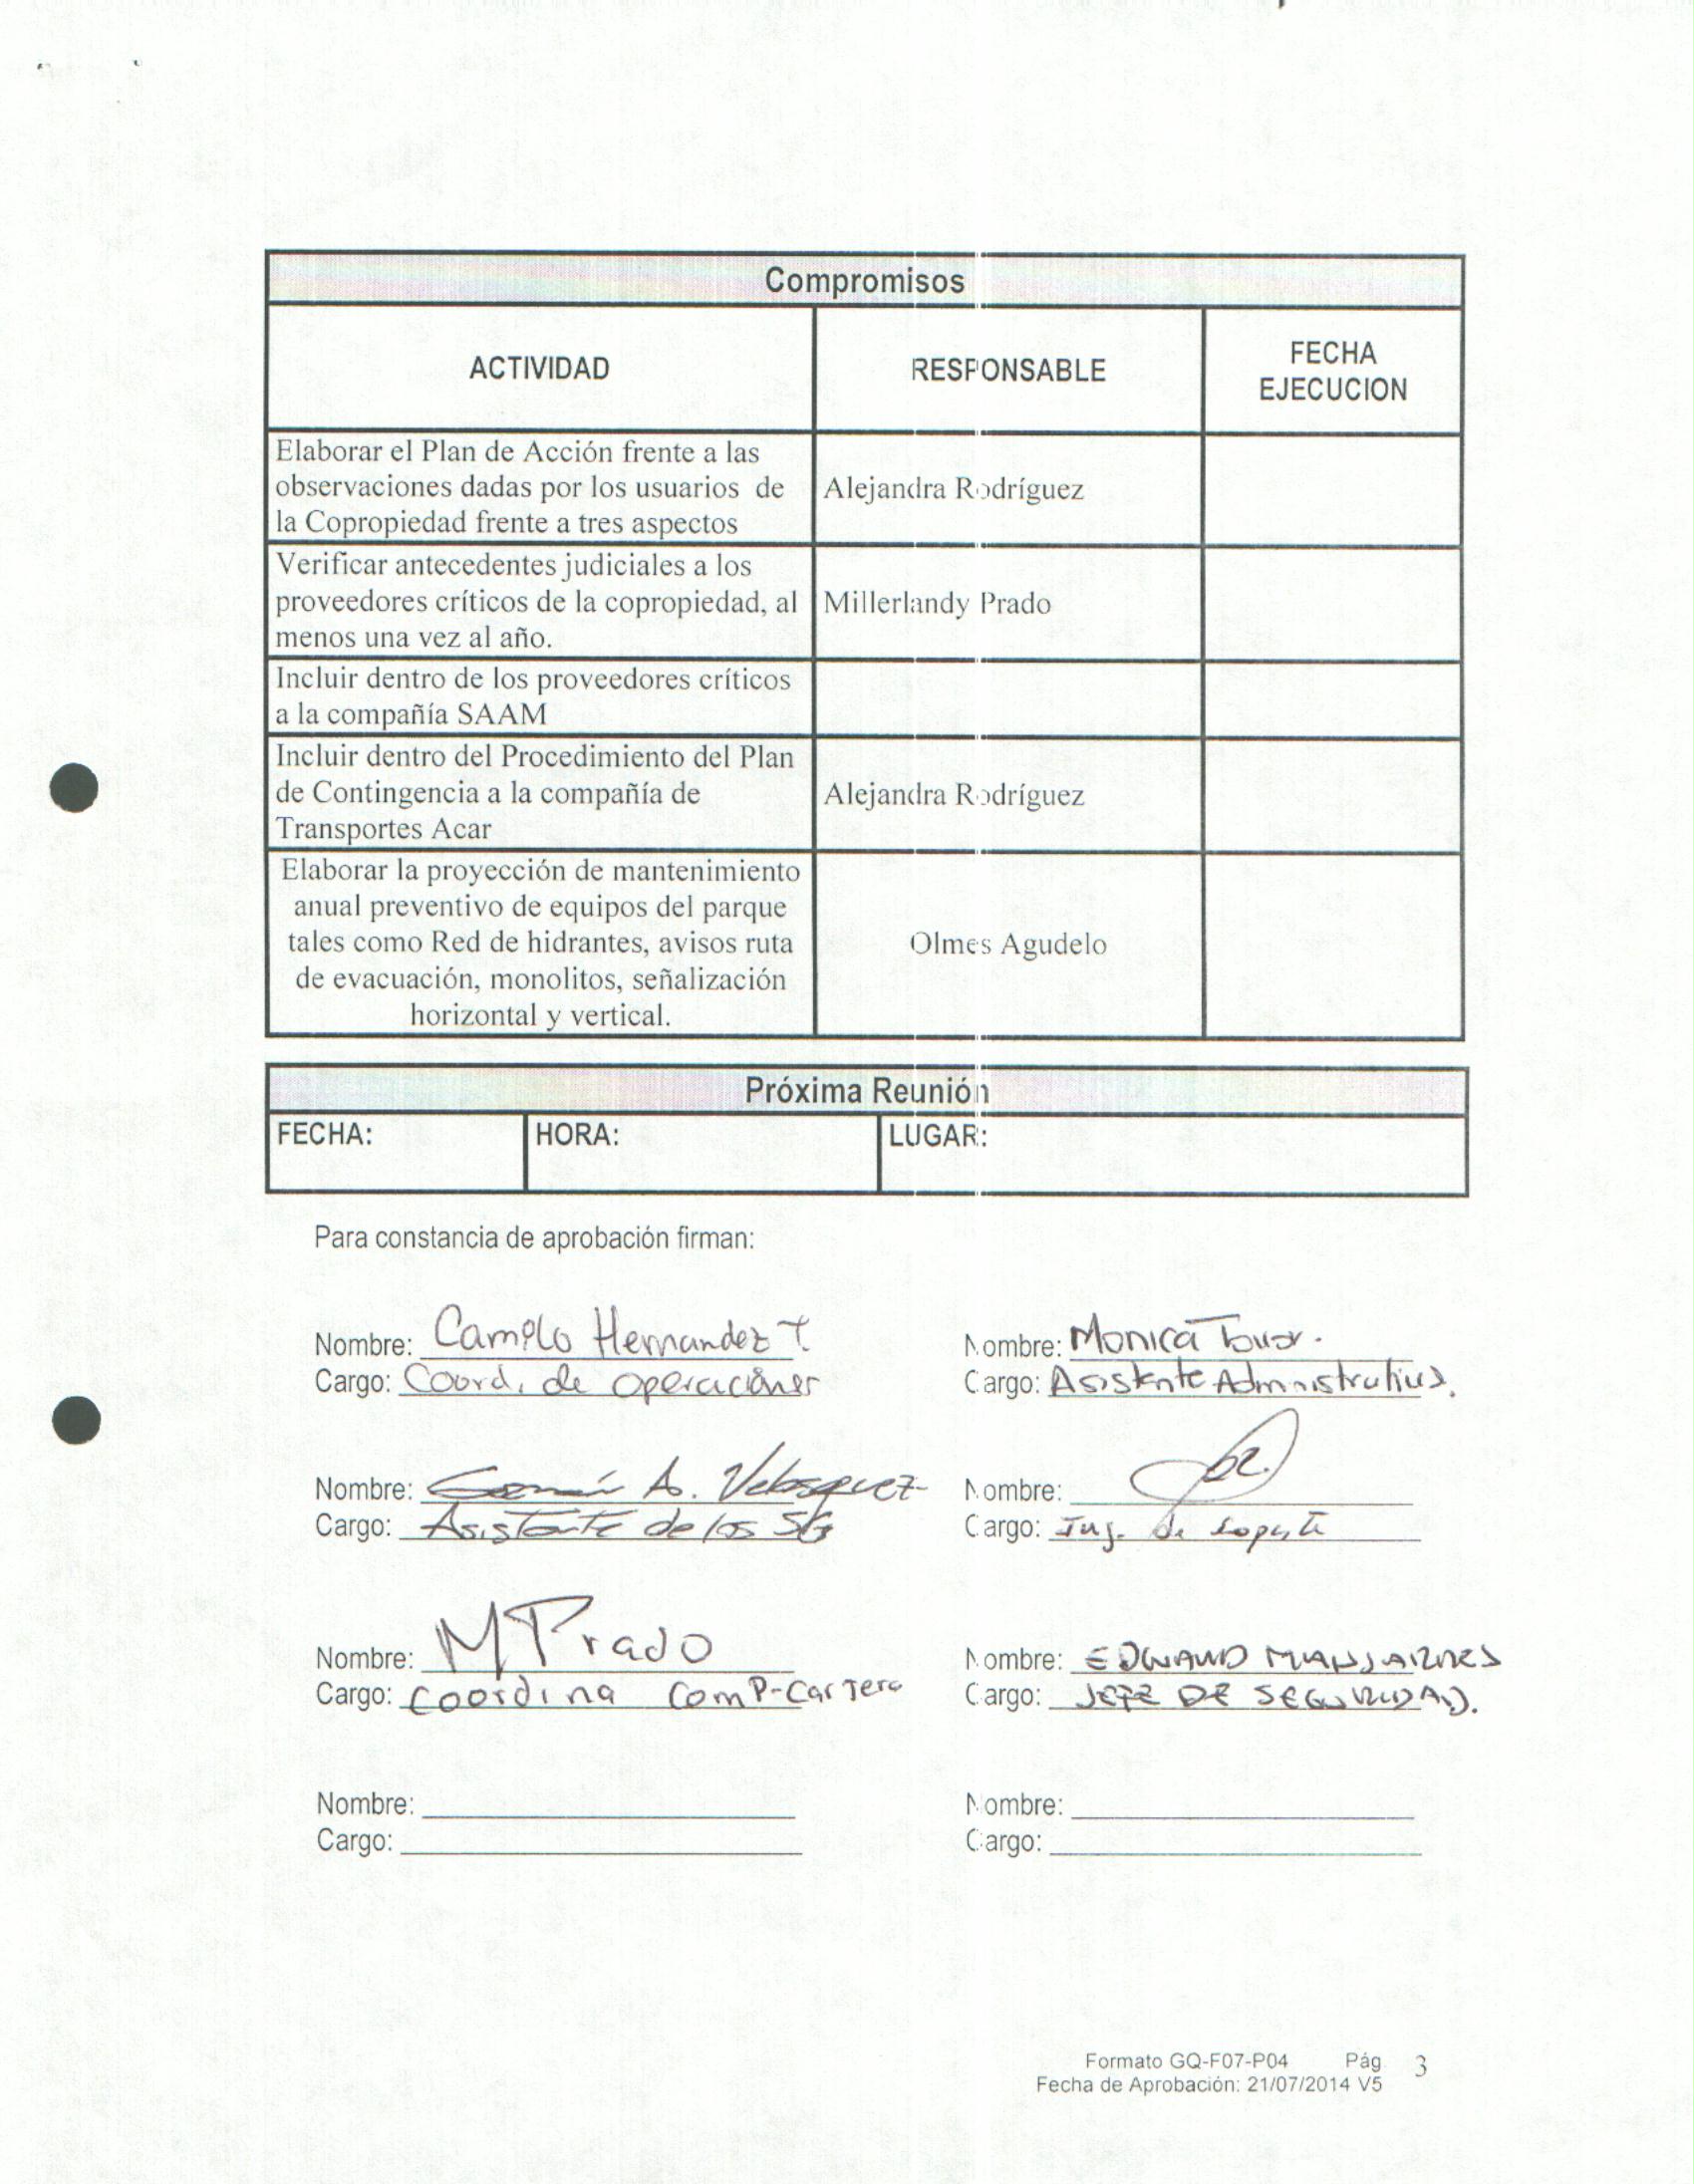 Compromisos
ACTIVIDAD RESPONSABLE FECHA EJECUCION
Elaborar el Plan de Acción frente a las
observaciones dadas por los usuarios de
la Copropiedad frente a tres aspectos
Alejandra Rodríguez
Verificar antecedentes judiciales a los
proveedores críticos de la copropiedad, al
menos una vez al año.
Millerlandy Prado
Incluir dentro de los proveedores críticos
a la compañía SAAM
Incluir dentro del Procedimiento del Plan
de Contingencia a la compañía de
Transportes Acar
Alejandra Rodríguez
Elaborar la proyección de mantenimiento
anual preventivo de equipos del parque
tales como Red de hidrantes, avisos ruta
de evacuación, monolitos, señalización
horizontal y vertical.
Olmes Agudelo
Próxima Reunión
FECHA: HORA: LUGAR:
Para constancia de aprobación firman:
Nombre: Camilo Hernandez T. Nombre: Monica Tovar.
Cargo: Coord. de operaciones Cargo: Asistente Administrativa.
Nombre: A. Velasquez Nombre:
Cargo: Asistente de los SG Cargo: Ing. de Soporte
Nombre: M Prado Nombre: EDWARD
Cargo: Coordina Comp-Cartera Cargo: JEFE DE SEGURIDAD.
Nombre: Nombre:
Cargo: Cargo:
Formato GQ-F07-P04 Pág 3
Fecha de Aprobación: 21/07/2014 V5